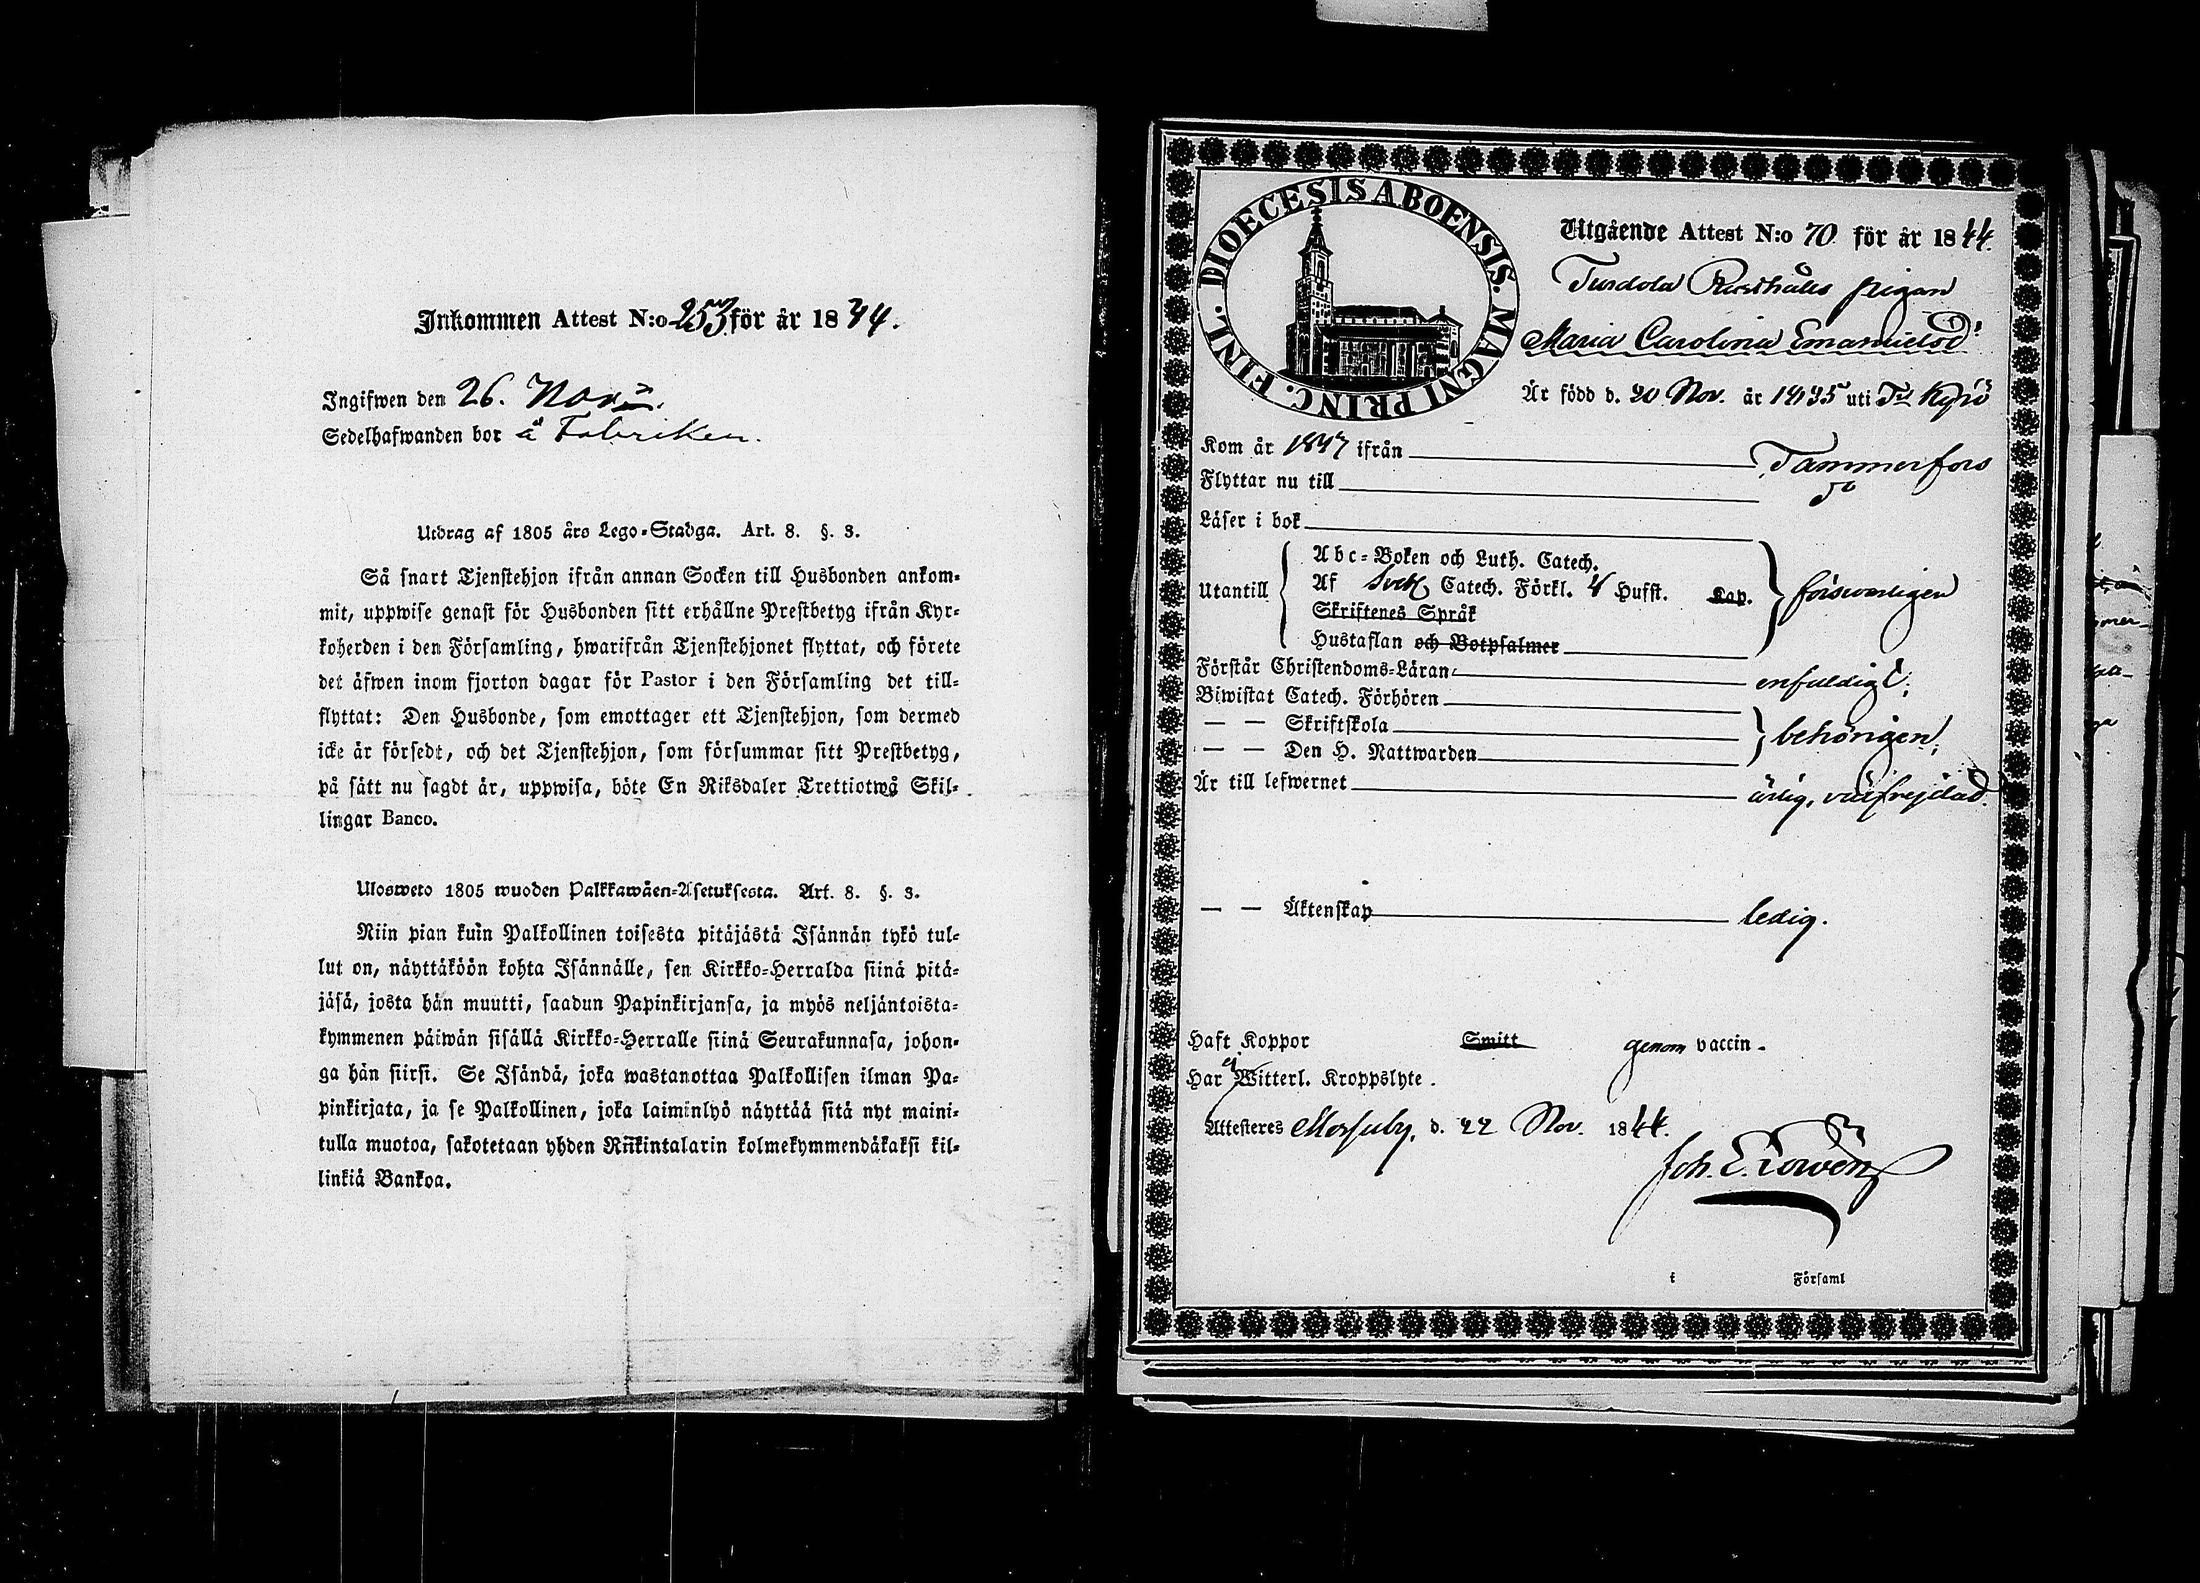 Inkommen Attest N:o 253 för år 1844.
Ingifwen den 26. Nov:r.
Sedelhafwanden bor å Fabriken.
Utdrag af 1805 års Lego-Stadga. Art. 8. §. 3.
Så snart Tjenstehjon ifrån annan Socken till Husbonden ankom-
mit, uppwise genast för Husbonden sitt erhållne Prestbetyg ifrån Kyr-
koherden i den Församling, hwarifrån Tjenstehjonet flyttat, och förete
det äfwen inom fjorton dagar för Pastor i den Församling det till-
flyttat: Den Husbonde, som emottager ett Tjenstehjon, som dermed
icke är försedt, och det Tjenstehjon, som försummar sitt Prestbetyg,
på sätt nu sagdt är, uppwisa, böte En Riksdaler Trettiotwå Skil-
lingar Banco.
Ulosweto 1805 wuoden Palkkawäen-Asetuksesta. Art. 8. §. 3.
Niin pian kuin Palkollinen toisesta pitäjästä Isännän tykö tul-
lut on, näyttäköön kohta Isännälle, sen Kirkko-Herralda siinä pitä-
jäsä, josta hän muutti, saadun Papinkirjansa, ja myös neljäntoista-
kymmenen päiwän sisällä Kirkko-Herralle siinä Seurakunnasa, johon-
ga hän siirsi. Se Isändä, joka wastanottaa Palkollisen ilman Pa-
pinkirjata, ja se Palkollinen, joka laiminlyö näyttää sitä nyt maini-
tulla muotoa, sakotetaan yhden Riikintalarin kolmekymmendäkaksi kil-
linkiä Bankoa.
DIOECESIS ABOENSIS. MAGNI PRINC. FINL.
Utgående Attest N:o 70 för år 1844.
Turdola Rusthålls pigan
Maria Carolina Emanuelsd:r
Är född d. 20 Nov. år 1825 uti T Kyrö
Kom år 1847 ifrån Tammerfors
Flyttar nu till do
Läser i bok
Abc-Boken och Luth. Catech.
Utantill Af Catech. Förkl. 4 Hufst. Kap. försvarligen
Skriftenes Språk
Hustaflan och Botpsalmer
Förstår Christendoms-Läran enfaldigt;
Biwistat Catech. Förhören
— — Skriftskola behörigen;
— — Den H. Nattwarden
Är till lefwernet ärlig, välfrejdad.
— — Äktenskap ledig.
Haft Koppor Smitt genom vaccin.
Har ej Witterl. Kroppslyte.
Attesteres Messuby, d. 22 Nov. 1844.
Joh. E.
i Församl